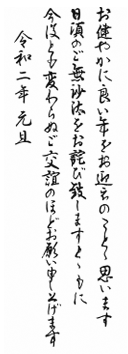 お健やかに良い年をお迎えのことと思います
日頃のご無沙汰をお詫び致しますとともに
今後とも変わらぬご交誼のほどお願い申し上げます
令和二年 元旦